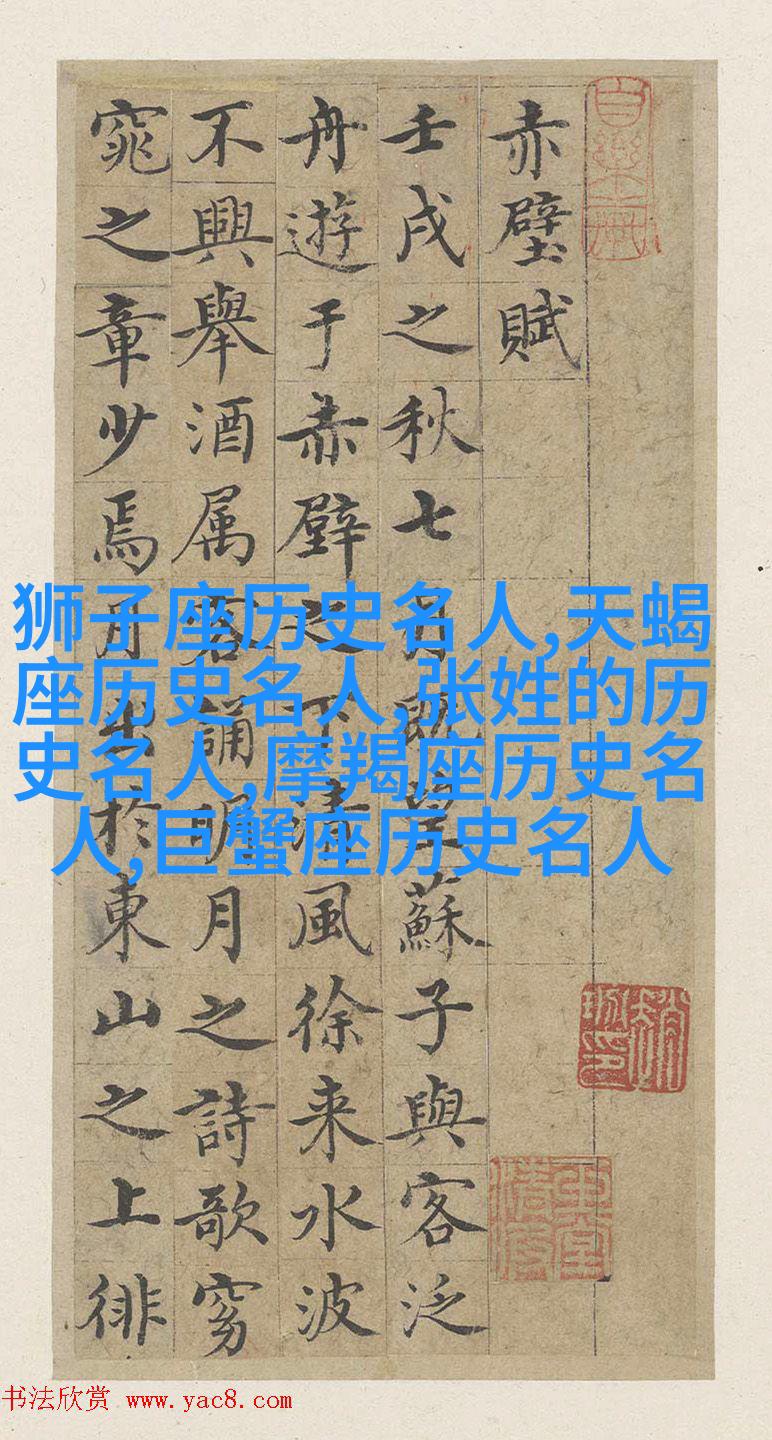 赤壁賦
壬戌之秋七月既望蘇子與客泛
舟遊于赤壁之下清風徐来水波
不興舉酒属客誦明月之詩歌窈
窕之章少焉月出於東山之上徘
狮子座历史名人,天蝎
座历史名人,张姓的历
史名人,摩羯座历史名
人,巨蟹座历史名人
书法欣赏 www.yac8.com